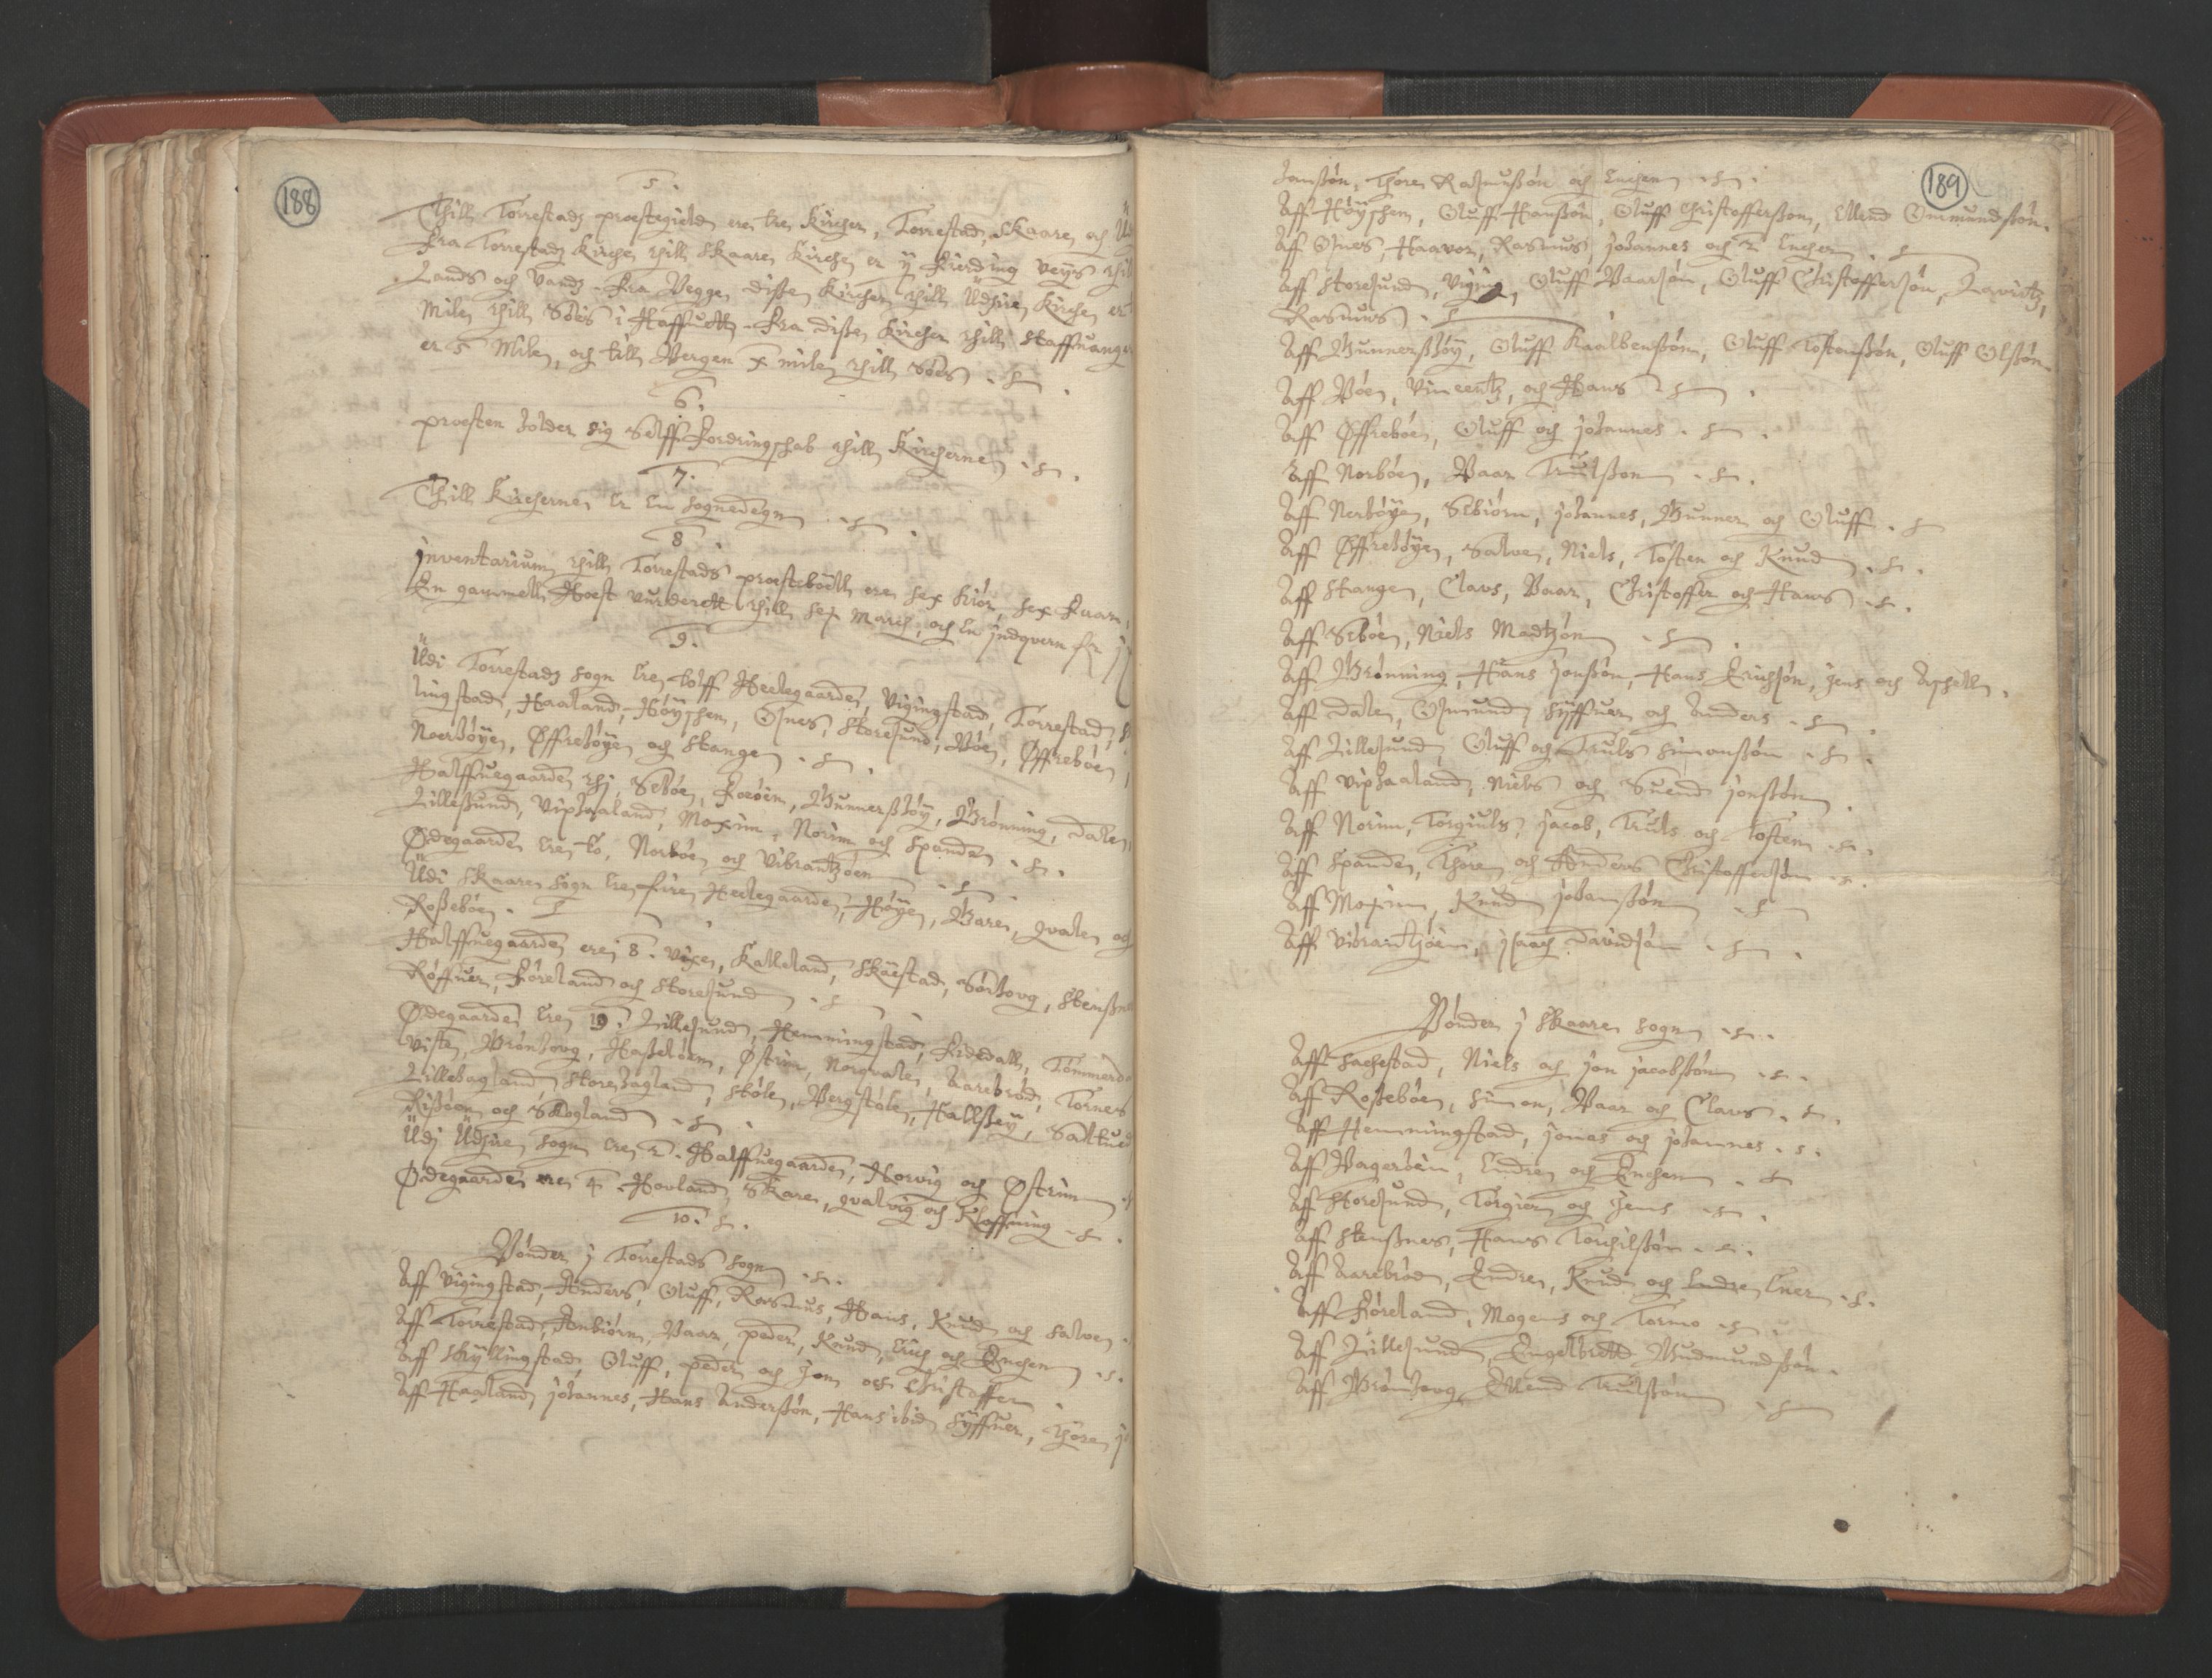 188
5.
Thill Torrestads prestegield ere tre Kircher, Torrestad, Skaare, och Ud
Fra Torrestads Kirche thill Skaare Kirche er ij fierding veijs thil
Lands och Vands. Fra Begge disse Kircher thill Udsire Kirche er
Mile thill Söes i Haffuett. Fra disse Kircher thill Staffuanger
er 5 Mile, och till Bergen x mile thill Söes.
6.
presten holder sig Selff fordringschab thill Kircherne.
7.
Thill Kircherne er en Sognedegn.
8
Inventarium thill Torrestads prestebolle ere sex Kiör, sex Faar,
En gammell Hest vurderett thill sex March, och en jndqvern for j
9.
Udi Torrestads Sogn ere tolff Heelegaarde, Vigingstad, Torrestad, S
lingstad, Haaland, Höyschen, Osnes, Storesund, Böe, Øffreböe,
Nerhöye, Øffrehöye och Stange.
Halffuegaarde xhj, Seböe, Föeöen, Gunnershöy, Grönning, Dale,
Lillesund, Viphaaland, Moxim, Norim och Spande.
Ødegaarde ere to, Norböe och Vibrantzöen
Udi Skaare Sogn ere fire Heelegaarde, Höye, Gare, Qvale och
Rosseböe.
Halffuegaarde ere 8. Vixe, Kalleland, Skaestad, Sörhoug, Stensnes
Röffuer, Föreland och Storesund
Ødegaarde ere 19. Lillesund, Hemmingstad, Fidsdall, Tömmerd
Visten, Brönhoug, Hasseloen, Østrim, Norqvale, Aarebröd, Tornes
Lillehagland, Storehagland, Stöle, Bergstöle, Hallsey, Saltued
Risöen och Skogland
Udj Udsire Sogn ere 2. Halffuegaarde, Horvig och Østrim
Ødegaarde ere 4. Hovland, Skare, qvalvig och Kloffning
10.
Bönder j Torrestads Sogn
Aff Vigingstad, Anders, Oluff, Rasmus, Hans, Knud och Salve
Aff Torrestad, Anbiörn, Baar, peder, Knud, Erich och Enchen
Aff Schyllingstad, Oluff, peder och Jon och Christoffer
Aff Haaland, Johannes, Hans Anderssön, Hans ibid Syffuer, Thore j
189
Janssön, Thore Rasmussön och Enchen
Aff Höyschen, Oluff Hanssön, Oluff Christofferssøn, Ellend Ommundssön.
Af Osnes, Haavor, Rasmus, Johannes och 2 Encher
Aff Storesund, Viging, Oluff Baarsön, Oluff Christoffersön, Lavritz,
Rasmus
Aff Gunnershöy, Oluff Kaalbenssön, Oluff Tostenssön, Oluff Olssön.
Aff Böe, Vincentz, och Hans
Aff Øffreböe, Oluff och Johannes
Aff Norböe, Baar Trulsson
Aff Nerhöye, Sebiörn, Johannes, Gunner och Oluff
Aff Øffrehöye, Salve, Niels, Tosten och Knud
Aff Stange, Claus, Baar, Christoffer och Hans
Aff Seböe, Niels Madtzön
Aff Grönning, Hans Jonssön, Hans Erichsön, Jens och Aschell
Aff Dale, Osmund, Syffuer och Anders
Aff Lillesund Oluff og Truls Simonssön
Aff Viphaaland, Niels och Suend Jonssön
Aff Norim, Torgiuls, Jacob, Truls och Tosten
Aff Spande, Thore och Anders Christoffersön
Aff Moxim, Knud Johanssön
Aff Vibrantzöen, Jsaach Davidsön
Bönder j Skaare Sogn
Aff Sachestad, Niels och Jon Jacobssön
Aff Rosseböe, Simon, Baar och Claus
Aff Hemmingstad, Jonas och Johannes
Aff Vageröen, Endre och Enchen
Aff Storesund, Torgier och Jens
Aff Stensnes, Hans Torchilssön
Aff Aarebröd, Endre, Knud och Endre Iuer
Aff Föreland, Mogens och Tormo
Aff Lillesund, Engelbrett Gudmundssön
Aff Brönhoug, Ellend Trulssön